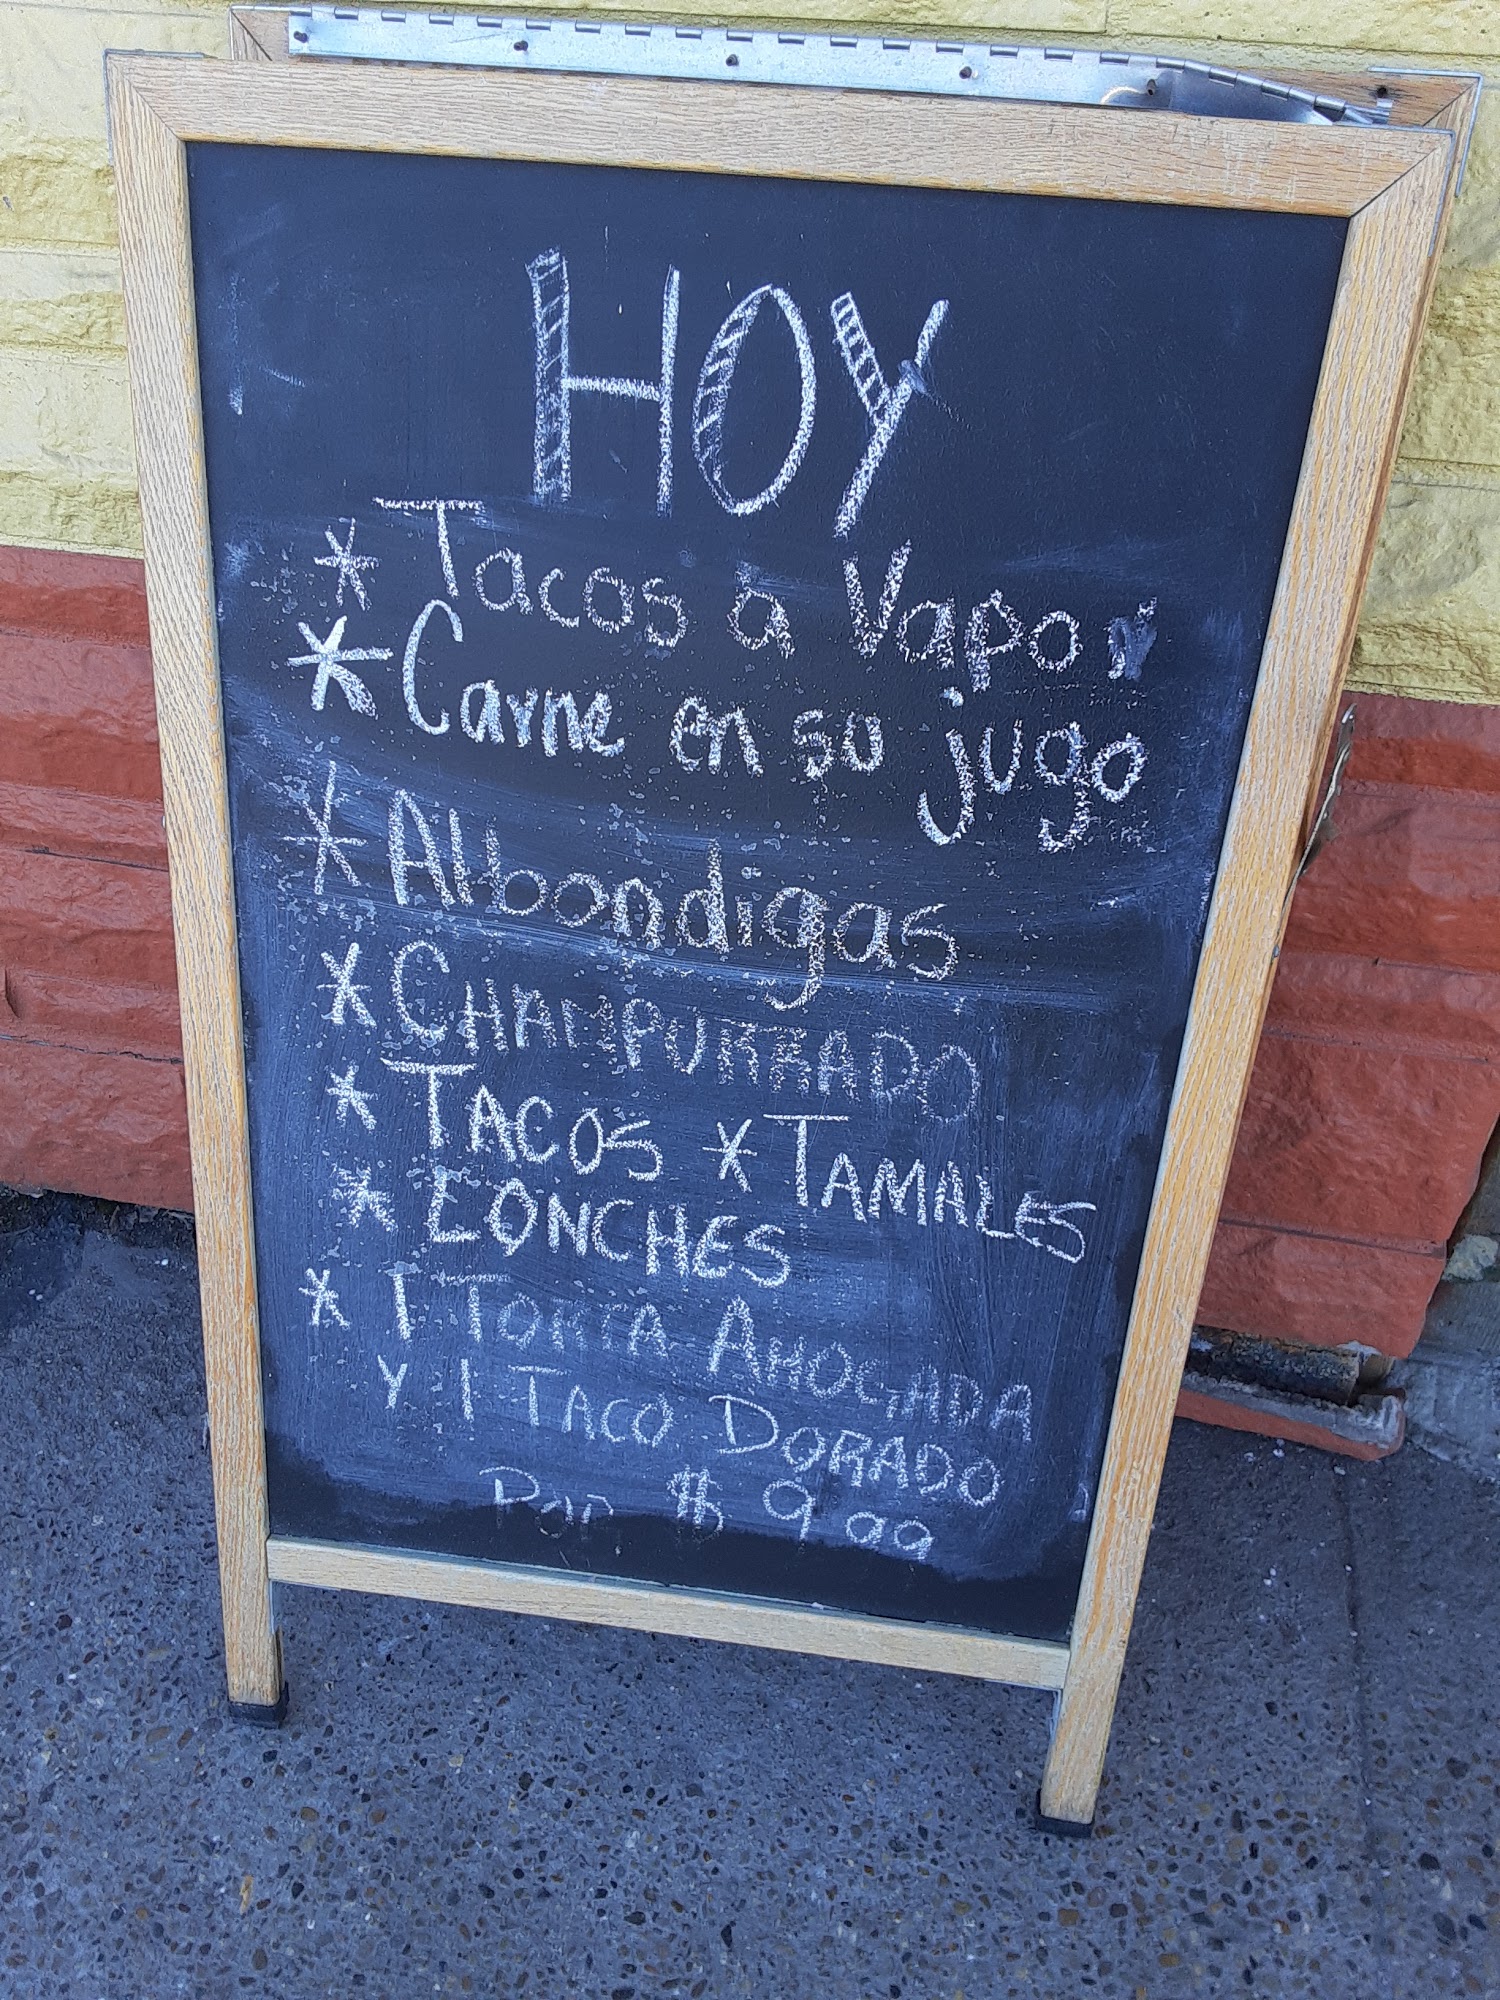 HOY
* Tacos a Vapor
* Carne en su jugo
* Albondigas
* CHAMPURRADO
* TACOS * TAMALES
* LONCHES
* 1 TORTA AHOGADA
Y 1 TACO DORADO
Por $ 9.99